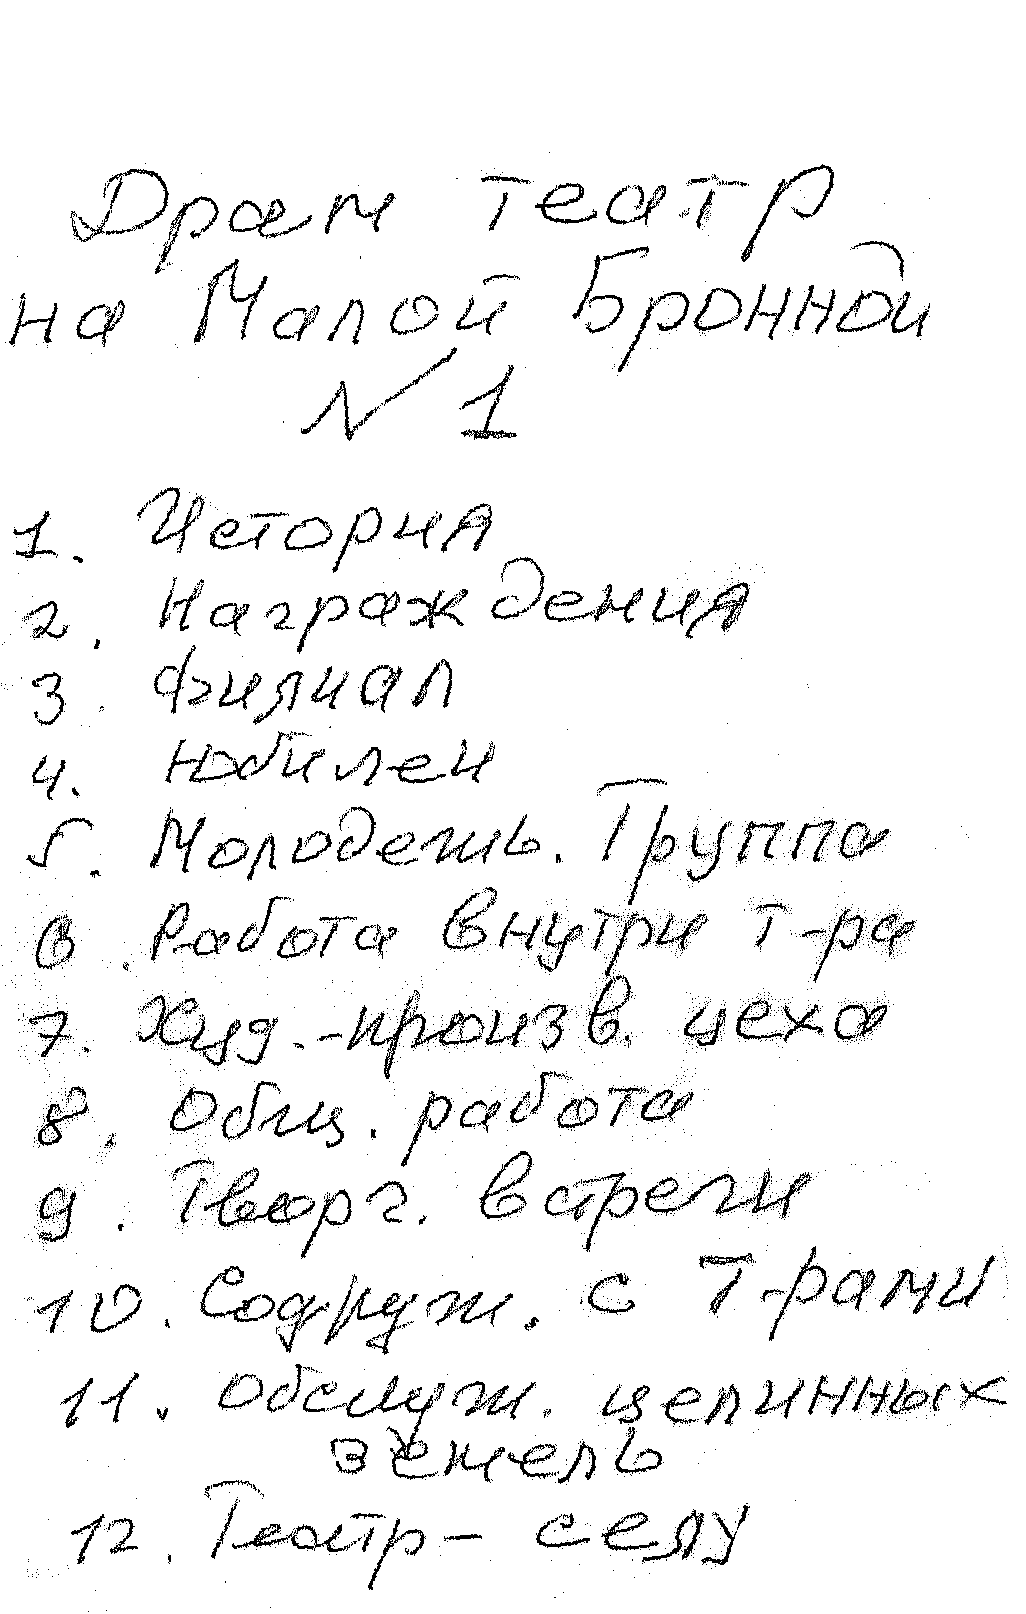 Драм театр
на Малой Бронной
N 1
1. История
2. Награждения
3. Филиал
4. Юбилеи
5. Молодежь. Группа
6. Работа внутри т-ра
7. Худ.-произв. цеха
8. Общ. работа
9. Творч. встречи
10. Содруж. с т-рами
11. Обслуж. целинных
земель
12. Театр - селу